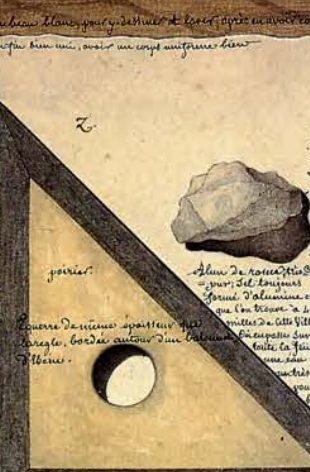 beau blanc, pour y dessiner et laver, après en avoir
bien uni, avoir un corps uniforme bien
Z.
poirier.
Equerre de même épaisseur que
la regle, bordée autour d'un
d'Ebène.
Alun de rome, très
pur; Sel toujours
formé d'alumine
que l'on trouve a
milles de cette Vill
En exposse sur
toute la feu
une eau